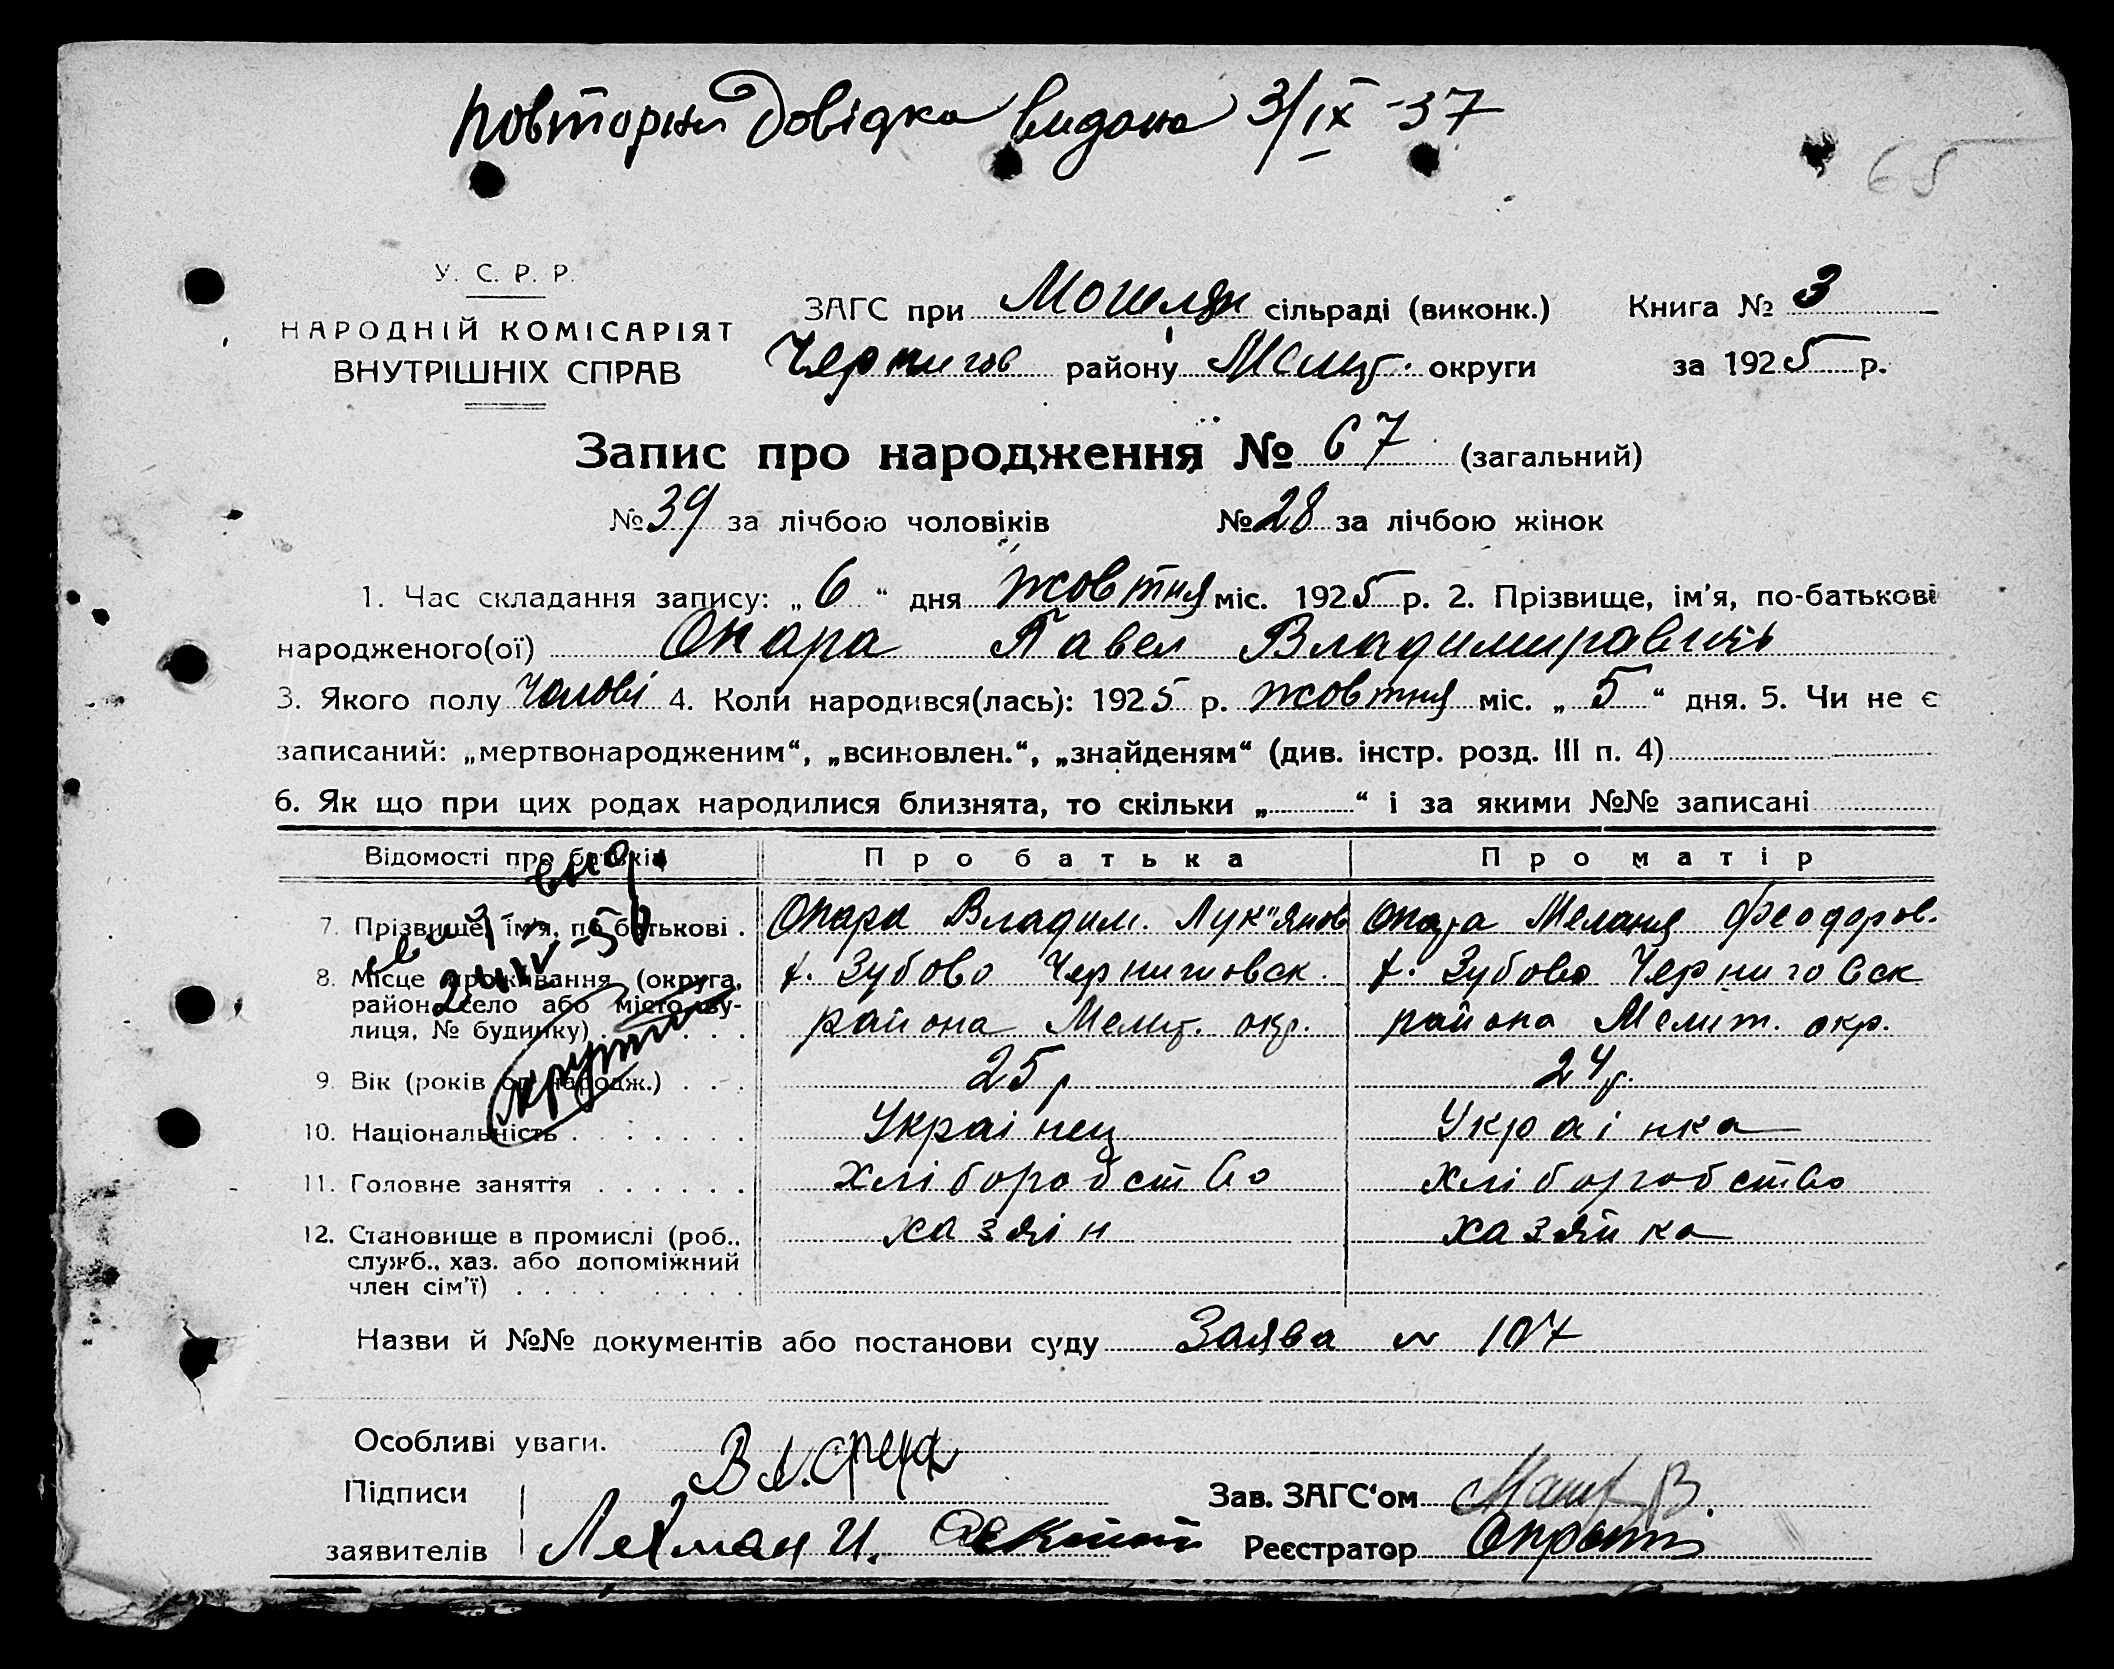 Повторна довідка видана 3/IX-37
65
У. С. Р. Р.
НАРОДНІЙ КОМІСАРІЯТ
ВНУТРІШНІХ СПРАВ
ЗАГС при сільраді (виконк.) Книга № 3
Чернигов району Меліт. округи за 1925 р.
Запис про народження № 67 (загальний)
№ 39 за лічбою чоловіків № 28 за лічбою жінок
1. Час складання запису: „ 6 “ дня жовтня міс. 1925 р. 2. Прізвище, ім'я, по-батькові
народженого(ої) Опара Павел Владимиравичь
3. Якого полу Чолові 4. Коли народився(лась): 1925 р. жовтня міс. „ 5 “ дня. 5. Чи не є
записаний: „мертвонародженим“, „всиновлен.“, „знайденям“ (див. інстр. розд. III п. 4)
6. Як що при цих родах народилися близнята, то скільки „ “ і за якими №№ записані
Відомості про батьків Про батька Про матір
7. Прізвище, ім'я, по батькові . Опара Владим. Лук"янов Опара Мелания Феодоров.
8. Місце проживання (округа, х. Зубово Черниговск. х. Зубово Черниговск
район, село або місто, ву- района Меліт. окр. района Меліт. окр.
лиця, № будинку)
9. Вік (років од народж.) . . . 25 р 24 р.
10. Національність . . . . . . Украінец Украінка
11. Головне заняття . . . . . . хліборобство хліборобство
12. Становище в промислі (роб., хазяін хазяйка
служб., хаз. або допоміжний
член сім'ї) . . . . . . . . .
Назви й №№ документів або постанови суду Заява № 107
Особливі уваги.
Підписи Зав. ЗАГС‘ом
заявителів Лехман И. Реєстратор